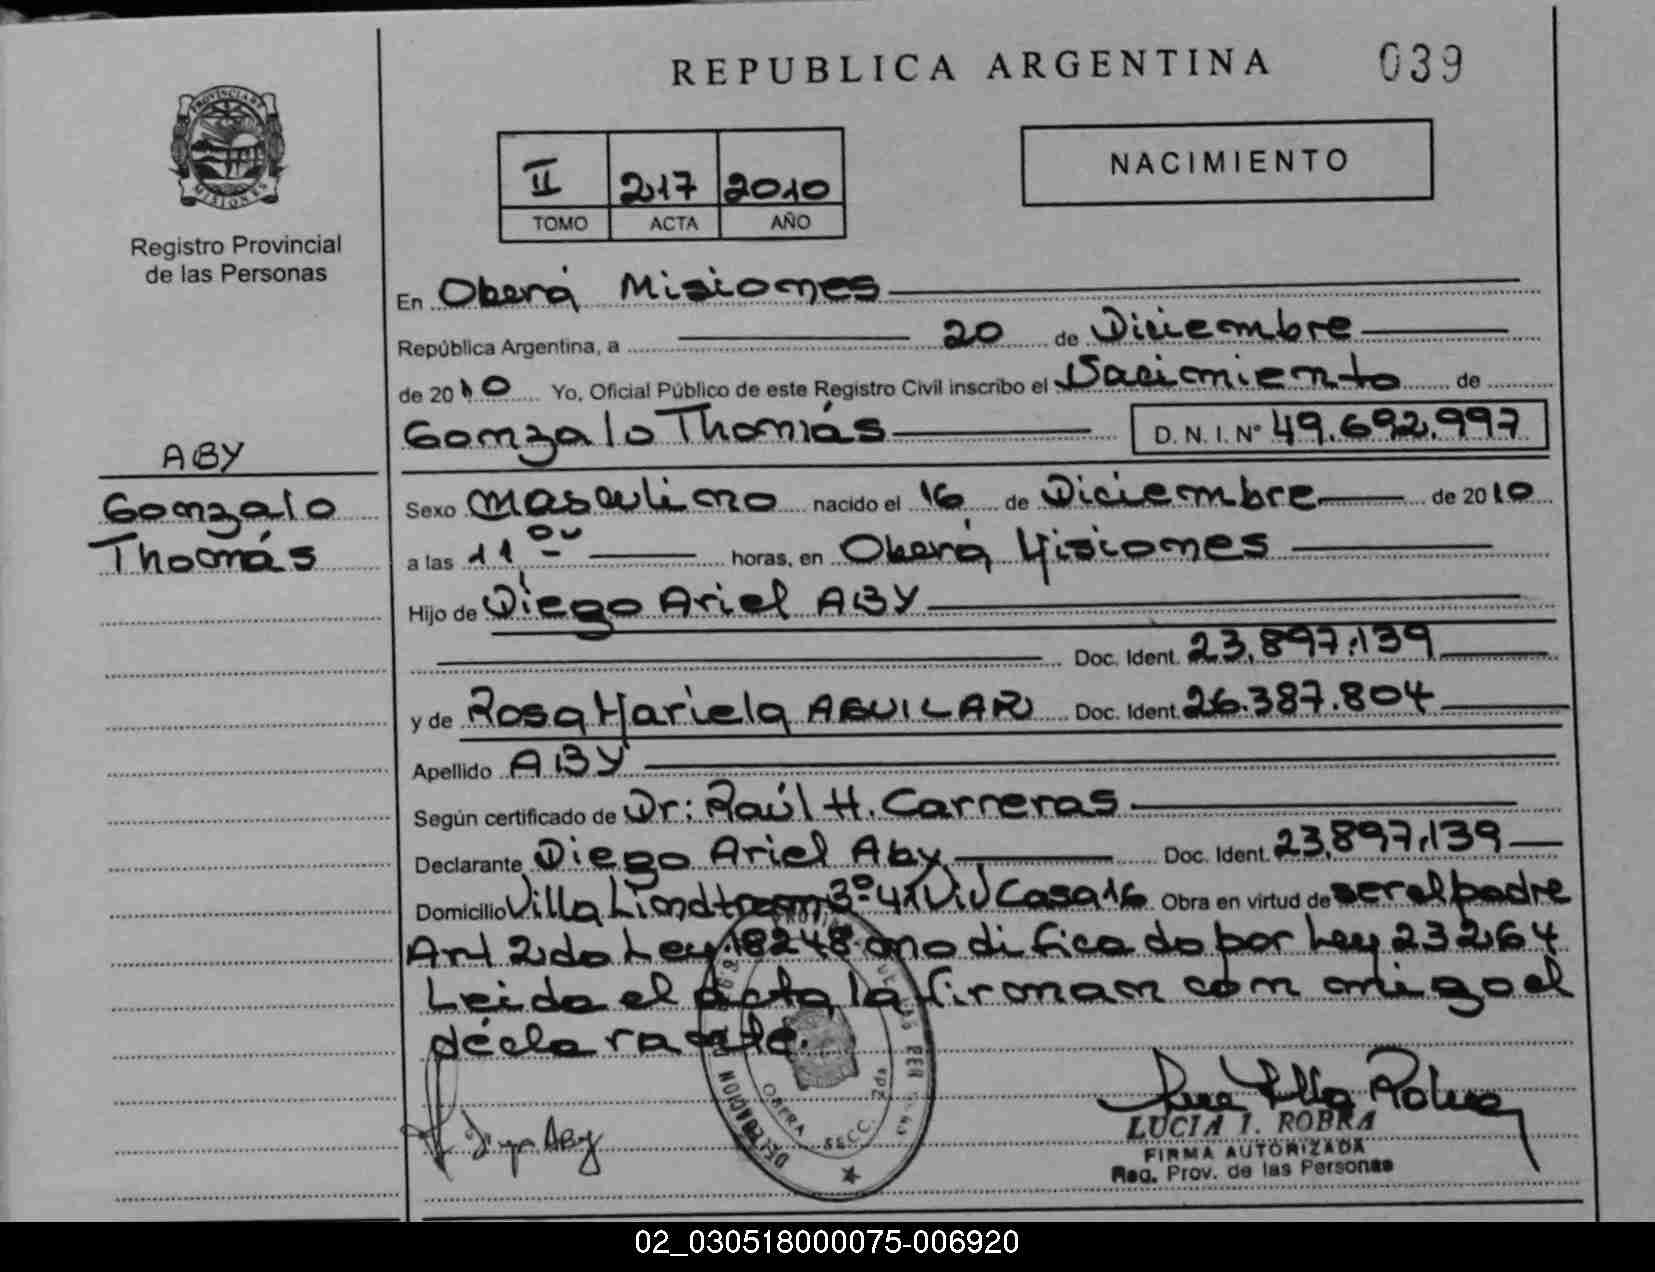 REPUBLICA ARGENTINA 039
PROVINCIA DE MISIONES
Registro Provincial
de las Personas
II 217 2010
TOMO ACTA AÑO
NACIMIENTO
En Oberá Misiones
República Argentina, a 20 de Diciembre
de 2010 Yo, Oficial Público de este Registro Civil inscribo el Nacimiento de
Gonzalo Thomás D.N.I. Nº 49.692.997
ABY
Gonzalo
Thomás
Sexo masculino nacido el 16 de Diciembre de 2010
a las 11 horas, en Oberá Misiones
Hijo de Diego Ariel ABY
Doc. Ident. 23.897.139
y de Rosa Mariela AGUILAR Doc. Ident. 26.387.804
Apellido ABY
Según certificado de Dr: Raúl H. Carreras
Declarante Diego Ariel Aby Doc. Ident. 23.897.139
Domicilio Villa 3º 4x Viv Casa 16 Obra en virtud de ser el padre
Art 2do Ley 18248 modificado por Ley 23264
Leida el acta la firman con migo el
declarante.
Diego Aby
OBERA SECC. 2da
LUCIA I. ROBRA
FIRMA AUTORIZADA
Reg. Prov. de las Personas
02_030518000075-006920